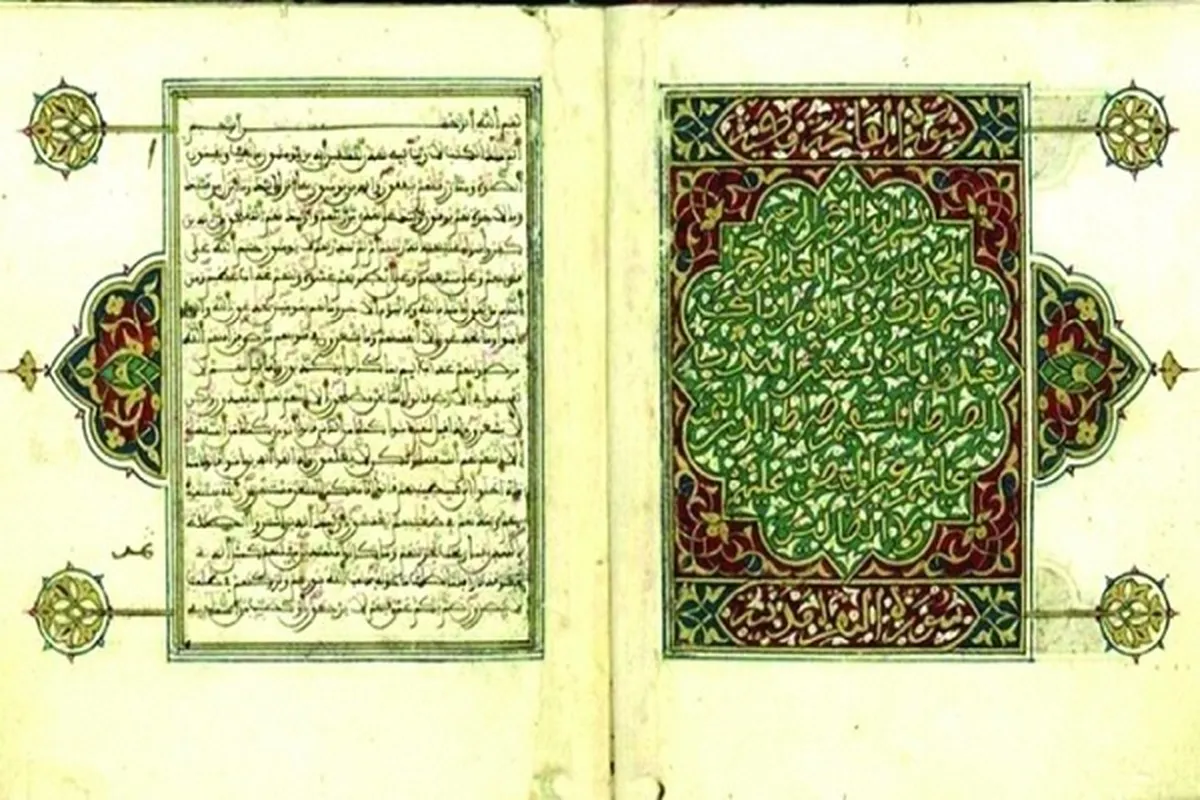 سورة الفاتحة
بسم الله الرحمن الرحيم
الحمد لله رب العلمين الر
حمن الرحيم ملك يوم الدين اياك
نعبد واياك نستعين اهدنا
الصراط المستقيم صراط الذين انعمت
عليهم غير المغضوب عليهم
ولا الضالين
سورة البقرة مدنية
بسم الله الرحمن الرحيم
الم ذلك الكتب لا ريب فيه هدى للمتقين الذين يومنون بالغيب ويقيمون
الصلوة ومما رزقنهم ينفقون والذين يومنون بما انزل اليك وما انزل من قبلك
وبالاخرة هم يوقنون اولئك على هدى من ربهم واولئك هم المفلحون ان الذين
كفروا سواء عليهم ءانذرتهم ام لم تنذرهم لا يومنون ختم الله على
قلوبهم وعلى سمعهم وعلى ابصرهم غشوة ولهم عذاب عظيم ومن
الناس من يقول ءامنا بالله وباليوم الاخر وما هم بمومنين يخدعون الله
والذين ءامنوا وما يخدعون الا انفسهم وما يشعرون في قلوبهم مرض فزادهم الله
مرضا ولهم عذاب اليم بما كانوا يكذبون واذا قيل لهم لا
تفسدوا في الارض قالوا انما نحن مصلحون الا انهم هم المفسدون ولكن
لا يشعرون واذا قيل لهم ءامنوا كما ءامن الناس قالوا انومن كما ءامن السفهاء
الا انهم هم السفهاء ولكن لا يعلمون واذا لقوا الذين ءامنوا قالوا ءامنا
واذا خلوا الى شيطينهم قالوا انا معكم انما نحن مستهزءون الله يستهزئ
بهم ويمدهم في طغينهم يعمهون اولئك الذين اشتروا الضللة
بالهدى فما ربحت تجرتهم وما كانوا مهتدين مثلهم كمثل الذي
استوقد نارا فلما اضاءت ما حوله ذهب الله بنورهم وتركهم في ظلمت
لا يبصرون صم بكم عمي فهم لا يرجعون او كصيب من السماء فيه